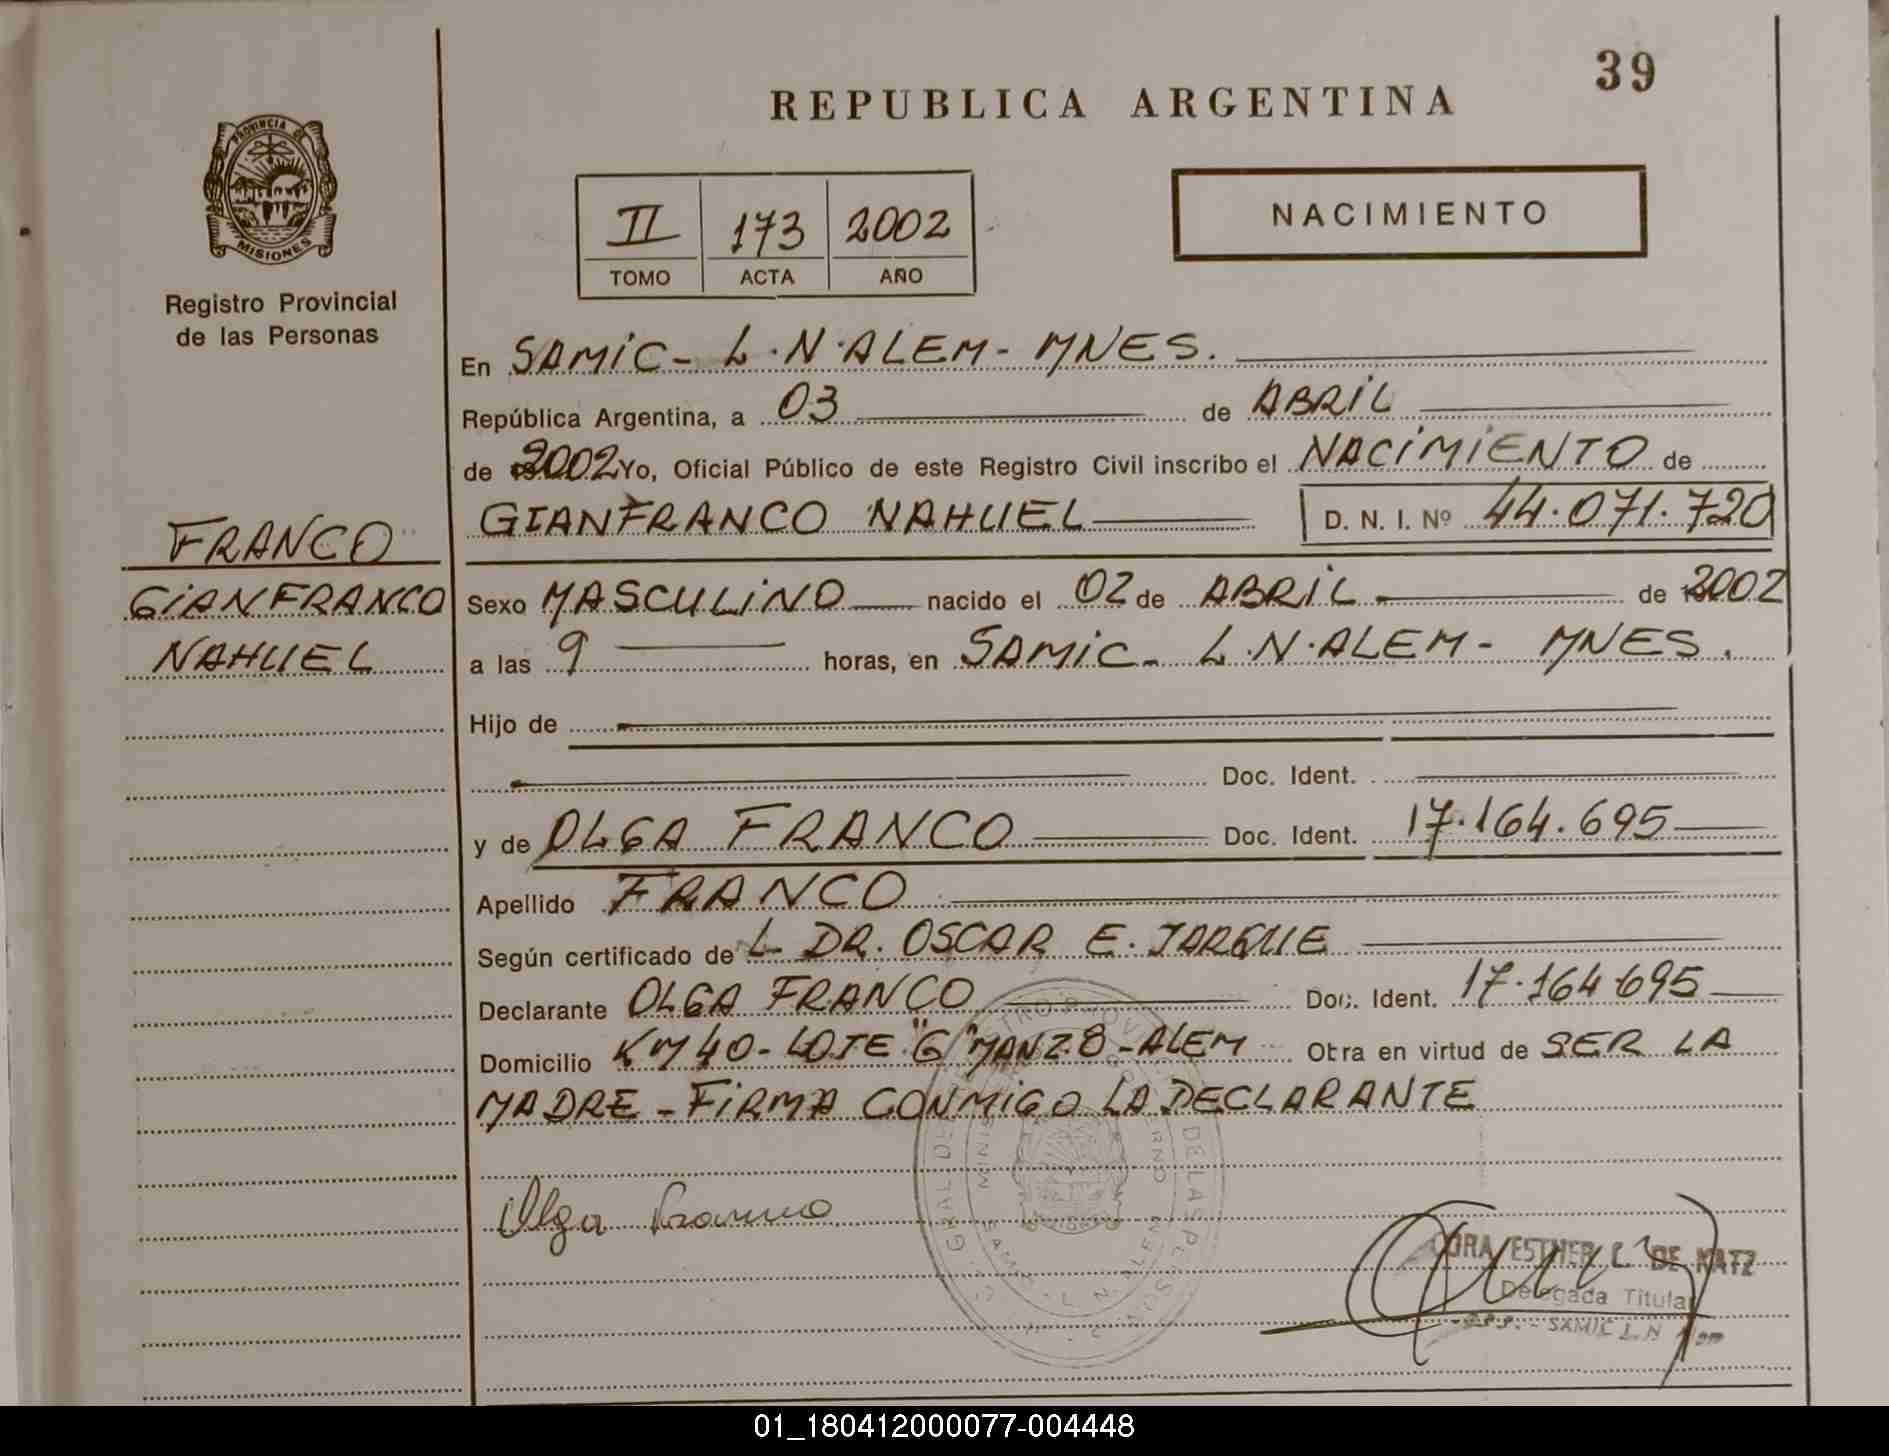 39
REPUBLICA ARGENTINA
PROVINCIA DE
MISIONES
Registro Provincial
de las Personas
II 173 2002
TOMO ACTA AÑO
NACIMIENTO
En SAMIC - L.N.ALEM - MNES.
República Argentina, a 03 de ABRIL
de 2002 Yo, Oficial Público de este Registro Civil inscribo el NACIMIENTO de
GIANFRANCO NAHUEL D. N. I. Nº 44.071.720
FRANCO
GIANFRANCO
NAHUEL
Sexo MASCULINO nacido el 02 de ABRIL de 2002
a las 9 horas, en SAMIC - L.N.ALEM - MNES.
Hijo de
Doc. Ident.
y de OLGA FRANCO Doc. Ident. 17.164.695
Apellido FRANCO
Según certificado de L DR. OSCAR E. JARQUE
Declarante OLGA FRANCO Doc. Ident. 17.164.695
Domicilio KM 40 - LOTE "G" MANZ 8 - ALEM Obra en virtud de SER LA
MADRE - FIRMA CONMIGO LA DECLARANTE
Olga Franco
ESTHER DE KATZ
Delegada Titular
SAMIC L.N
01_180412000077-004448